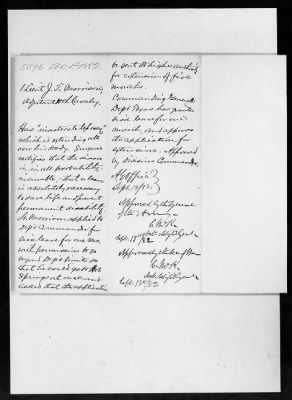 5596 ACP 1882.
1 Lieut J. T. Morrison,
Adjutant 10th Cavalry.
Has "inveterate leprosy"
which is extending all
over his body. Surgeon
certifies that the disease
is in all probability
incurable - that a leave
is absolutely necessary
to save life and prevent
permanent disability.
Lt. Morrison applied to
Dep't Commander for
sick leave for one mo.
with permission to go
beyond Dep't limits so
that he could go to Hot
Springs at once and
asked that the application
be sent to higher authority
for extension of five
months.
Commanding General
Dep't Texas has granted
sick leave for one
month, and approves
the application for
extension. Approved
by Division Commander.
A.G. Office
Sept. 12/82.
Approved by the General
of the Army
Asst. Adjt. General
Sept. 13th/82
Approved by the Sec. of War
Asst. Adjt. General
Sept. 13th/82